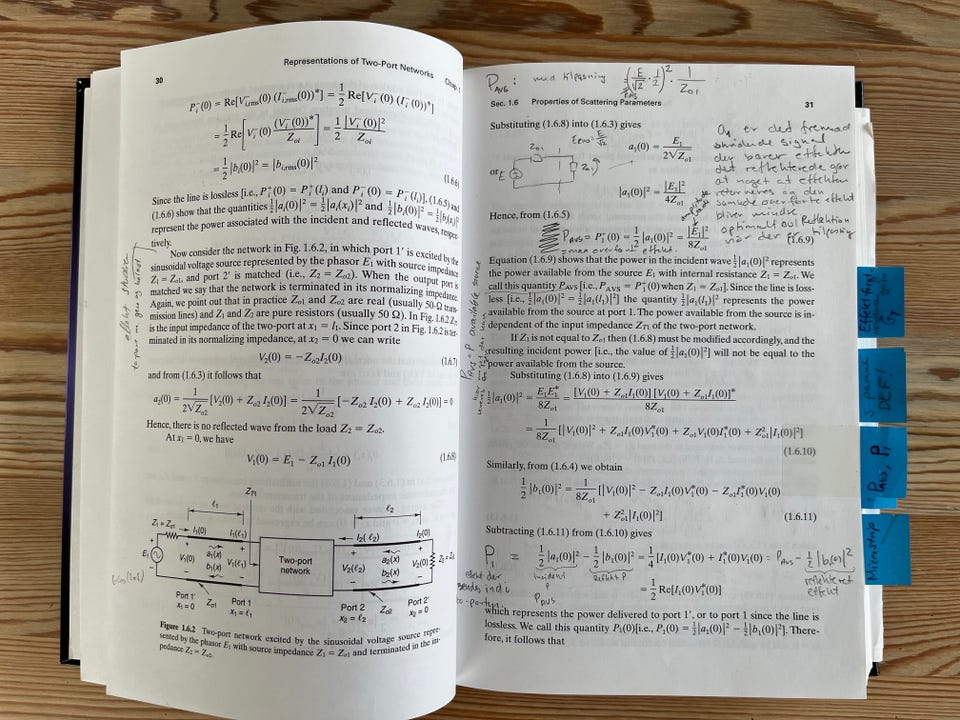 30
Representations of Two-Port Networks
Chap. 1
P₁⁻(0) = Re[V⁻i,rms(0) (I⁻i,rms(0))*] = 1/2 Re[Vi⁻(0) (Ii⁻(0))*]
= 1/2 Re[Vi⁻(0) (Vi⁻(0))*/Zoi] = 1/2 |Vi⁻(0)|²/Zoi
= 1/2 |bi(0)|² = |bi,rms(0)|²
(1.6.6)
Since the line is lossless [i.e., Pi⁺(0) = Pi⁺(li) and Pi⁻(0) = Pi⁻(li)], (1.6.5) and
(1.6.6) show that the quantities ½|ai(0)|² = ½|ai(xi)|² and ½|bi(0)|² = ½|bi(xi)|²
represent the power associated with the incident and reflected waves, respec-
tively.
Now consider the network in Fig. 1.6.2, in which port 1′ is excited by the
sinusoidal voltage source represented by the phasor E₁ with source impedance
Z₁ = Zo1, and port 2′ is matched (i.e., Z₂ = Zo2). When the output port is
matched we say that the network is terminated in its normalizing impedance.
Again, we point out that in practice Zo1 and Zo2 are real (usually 50-Ω trans-
mission lines) and Z₁ and Z₂ are pure resistors (usually 50 Ω). In Fig. 1.6.2 ZT1
is the input impedance of the two-port at x₁ = l₁. Since port 2 in Fig. 1.6.2 is ter-
minated in its normalizing impedance, at x₂ = 0 we can write
V₂(0) = −Zo2I₂(0)
(1.6.7)
and from (1.6.3) it follows that
a₂(0) = 1/(2√Zo2) [V₂(0) + Zo2 I₂(0)] = 1/(2√Zo2) [−Zo2 I₂(0) + Zo2 I₂(0)] = 0
Hence, there is no reflected wave from the load Z₂ = Zo2.
At x₁ = 0, we have
V₁(0) = E₁ − Zo1 I₁(0)
(1.6.8)
ZT1
ℓ₁
ℓ₂
Z₁ = Zo1
I₁(0)
I₁(ℓ₁)
I₂(ℓ₂)
I₂(0)
E₁
V₁(0)
a₁(x)
b₁(x)
V₁(ℓ₁)
Two-port
network
V₂(ℓ₂)
a₂(x)
b₂(x)
V₂(0)
Port 1′
x₁ = 0
Zo1
Port 1
x₁ = ℓ₁
Port 2
x₂ = ℓ₂
Zo2
Port 2′
x₂ = 0
Figure 1.6.2 Two-port network excited by the sinusoidal voltage source repre-
sented by the phasor E₁ with source impedance Z₁ = Zo1 and terminated in the im-
pedance Z₂ = Zo2.
PAVS: med tilpasning (E/√2 · 1/2)² · 1/Zo1
Sec. 1.6 Properties of Scattering Parameters
31
Substituting (1.6.8) into (1.6.3) gives
a₁(0) = E₁/(2√Zo1)
|a₁(0)|² = |E₁|²/4Zo1
Hence, from (1.6.5)
PAVS = P₁⁺(0) = 1/2 |a₁(0)|² = |E₁|²/8Zo1
(1.6.9)
Equation (1.6.9) shows that the power in the incident wave ½|a₁(0)|² represents
the power available from the source E₁ with internal resistance Z₁ = Zo1. We
call this quantity PAVS [i.e., PAVS = P₁⁺(0) when Z₁ = Zo1]. Since the line is loss-
less [i.e., ½|a₁(0)|² = ½|a₁(l₁)|²] the quantity ½|a₁(l₁)|² represents the power
available from the source at port 1. The power available from the source is in-
dependent of the input impedance ZT1 of the two-port network.
If Z₁ is not equal to Zo1 then (1.6.8) must be modified accordingly, and the
resulting incident power [i.e., the value of ½|a₁(0)|²] will not be equal to the
power available from the source.
Substituting (1.6.8) into (1.6.9) gives
1/2 |a₁(0)|² = E₁E₁*/8Zo1 = [V₁(0) + Zo1I₁(0)] [V₁(0) + Zo1I₁(0)]*/8Zo1
= 1/8Zo1 [|V₁(0)|² + Zo1I₁(0)V₁*(0) + Zo1V₁(0)I₁*(0) + Z²o1|I₁(0)|²]
(1.6.10)
Similarly, from (1.6.4) we obtain
1/2 |b₁(0)|² = 1/8Zo1 [|V₁(0)|² − Zo1I₁(0)V₁*(0) − Zo1I₁*(0)V₁(0)
+ Z²o1|I₁(0)|²]
(1.6.11)
Subtracting (1.6.11) from (1.6.10) gives
P₁ = 1/2 |a₁(0)|² − 1/2 |b₁(0)|² = 1/4 [I₁(0)V₁*(0) + I₁*(0)V₁(0)] = PAVS − 1/2 |b₁(0)|²
incident
P
PAVS
Reflekt P
reflekteret
effekt
= 1/2 Re[I₁(0)V₁*(0)]
which represents the power delivered to port 1′, or to port 1 since the line is
lossless. We call this quantity P₁(0)[i.e., P₁(0) = ½|a₁(0)|² − ½|b₁(0)|²]. There-
fore, it follows that
S param
DEF!
PAVS, P₁
Microstrip